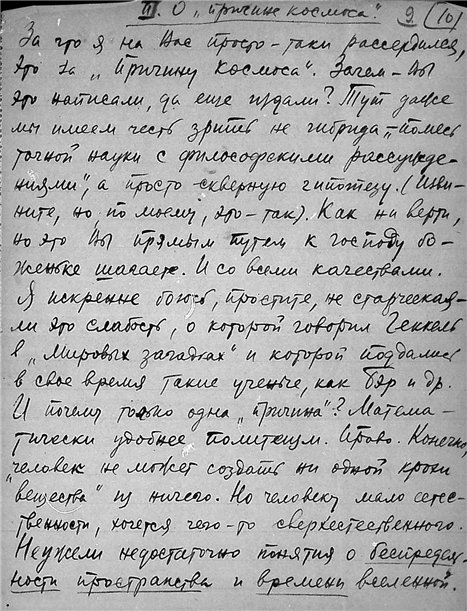 III. О „причине космоса". 9. (10)
За что я на Вас просто-таки рассердился,
это за „Причину Космоса". Зачем-Вы
это написали, да еще издали? Тут даже
мы имеем честь зрить не гибрида, „помесь
точной науки с философскими рассужде-
ниями", а просто-скверную гипотезу. (Изви-
ните, но по моему, это-так). Как ни верти,
но это Вы прямым путем к господу бо-
женьке шагаете. И со всеми качествами.
Я искренне боюсь, простите, не старческая-
ли это слабость, о которой говорил Геккель
в „Мировых загадках" и которой поддались
в свое время такие ученые, как Бэр и др.
И почему только одна „причина"? Матема-
тически удобнее политеизм. Право. Конечно,
человек не может создать ни одной крохи
„вещества" из ничего. Но человеку мало естес-
твенности, хочется чего-то сверхестественного.
Неужели недостаточно понятия о беспредель-
ности пространства и времени вселенной.